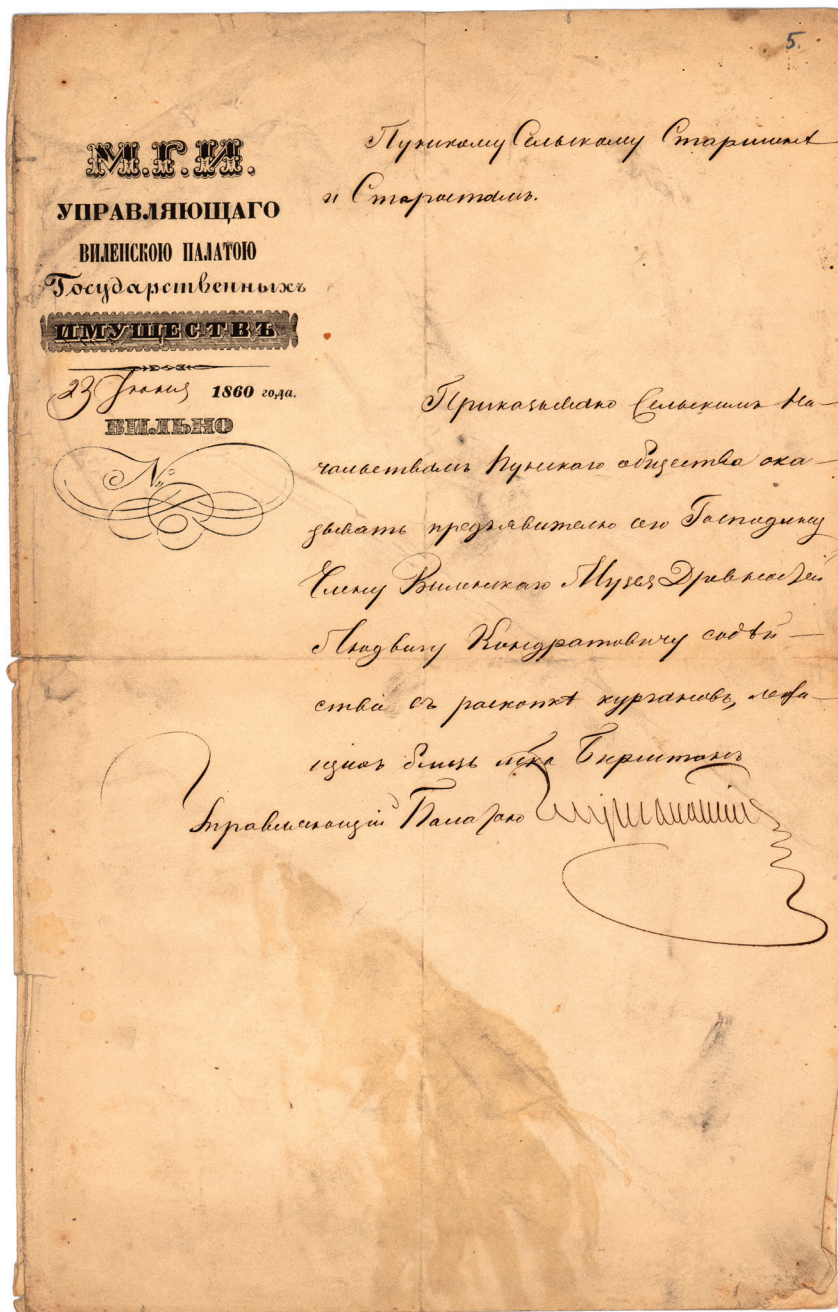 5.
М.Г.И.
УПРАВЛЯЮЩАГО
ВИЛЕНСКОЮ ПАЛАТОЮ
Государственныхъ
ИМУЩЕСТВЪ
23 Іюния 1860 года.
ВИЛЬНО
№
Пунскому Сельскому Старшинѣ
и Старостамъ.
Приказываю Сельскимъ На-
чальствамъ Пунскаго общества ока-
зывать предъявителю сего Господину
Члену Виленскаго Музея Древностей
Людвигу Кондратовичу содѣй-
ствіе въ раскопкѣ кургановъ, лежа-
щихъ близь мѣка Бирштанъ
Управляющій Палатою